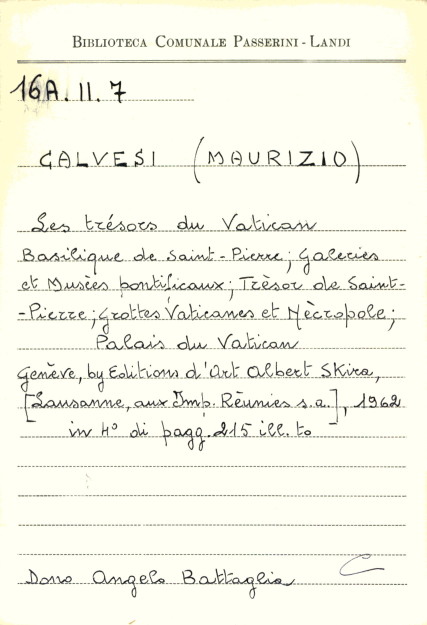 BIBLIOTECA COMUNALE PASSERINI - LANDI
16A. II. 7
CALVESI (MAURIZIO)
Les trésors du Vatican
Basilique de Saint-Pierre; Galeries
et Musées pontificaux; Trèsor de Saint-
-Pierre; Grottes Vaticanes et Nècropole;
Palais du Vatican
Genève, by Editions d'Art Albert Skira,
[Lausanne, aux Imp. Rèunies s.a.], 1962
in 4° di pagg. 215 ill. to
Dono Angelo Battaglia C